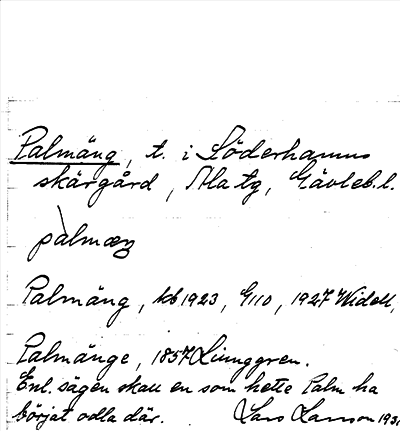 Palmäng, t. i Söderhamns
skärgård, Ala tg, Gävleb. l.
pàlmæŋ
Palmäng, kb 1923, G110, 1927 Widell,
Palmänge, 1857 Ljunggren.
Enl. sägen skall en som hette Palm ha
börjat odla där. Lars Larsson 193